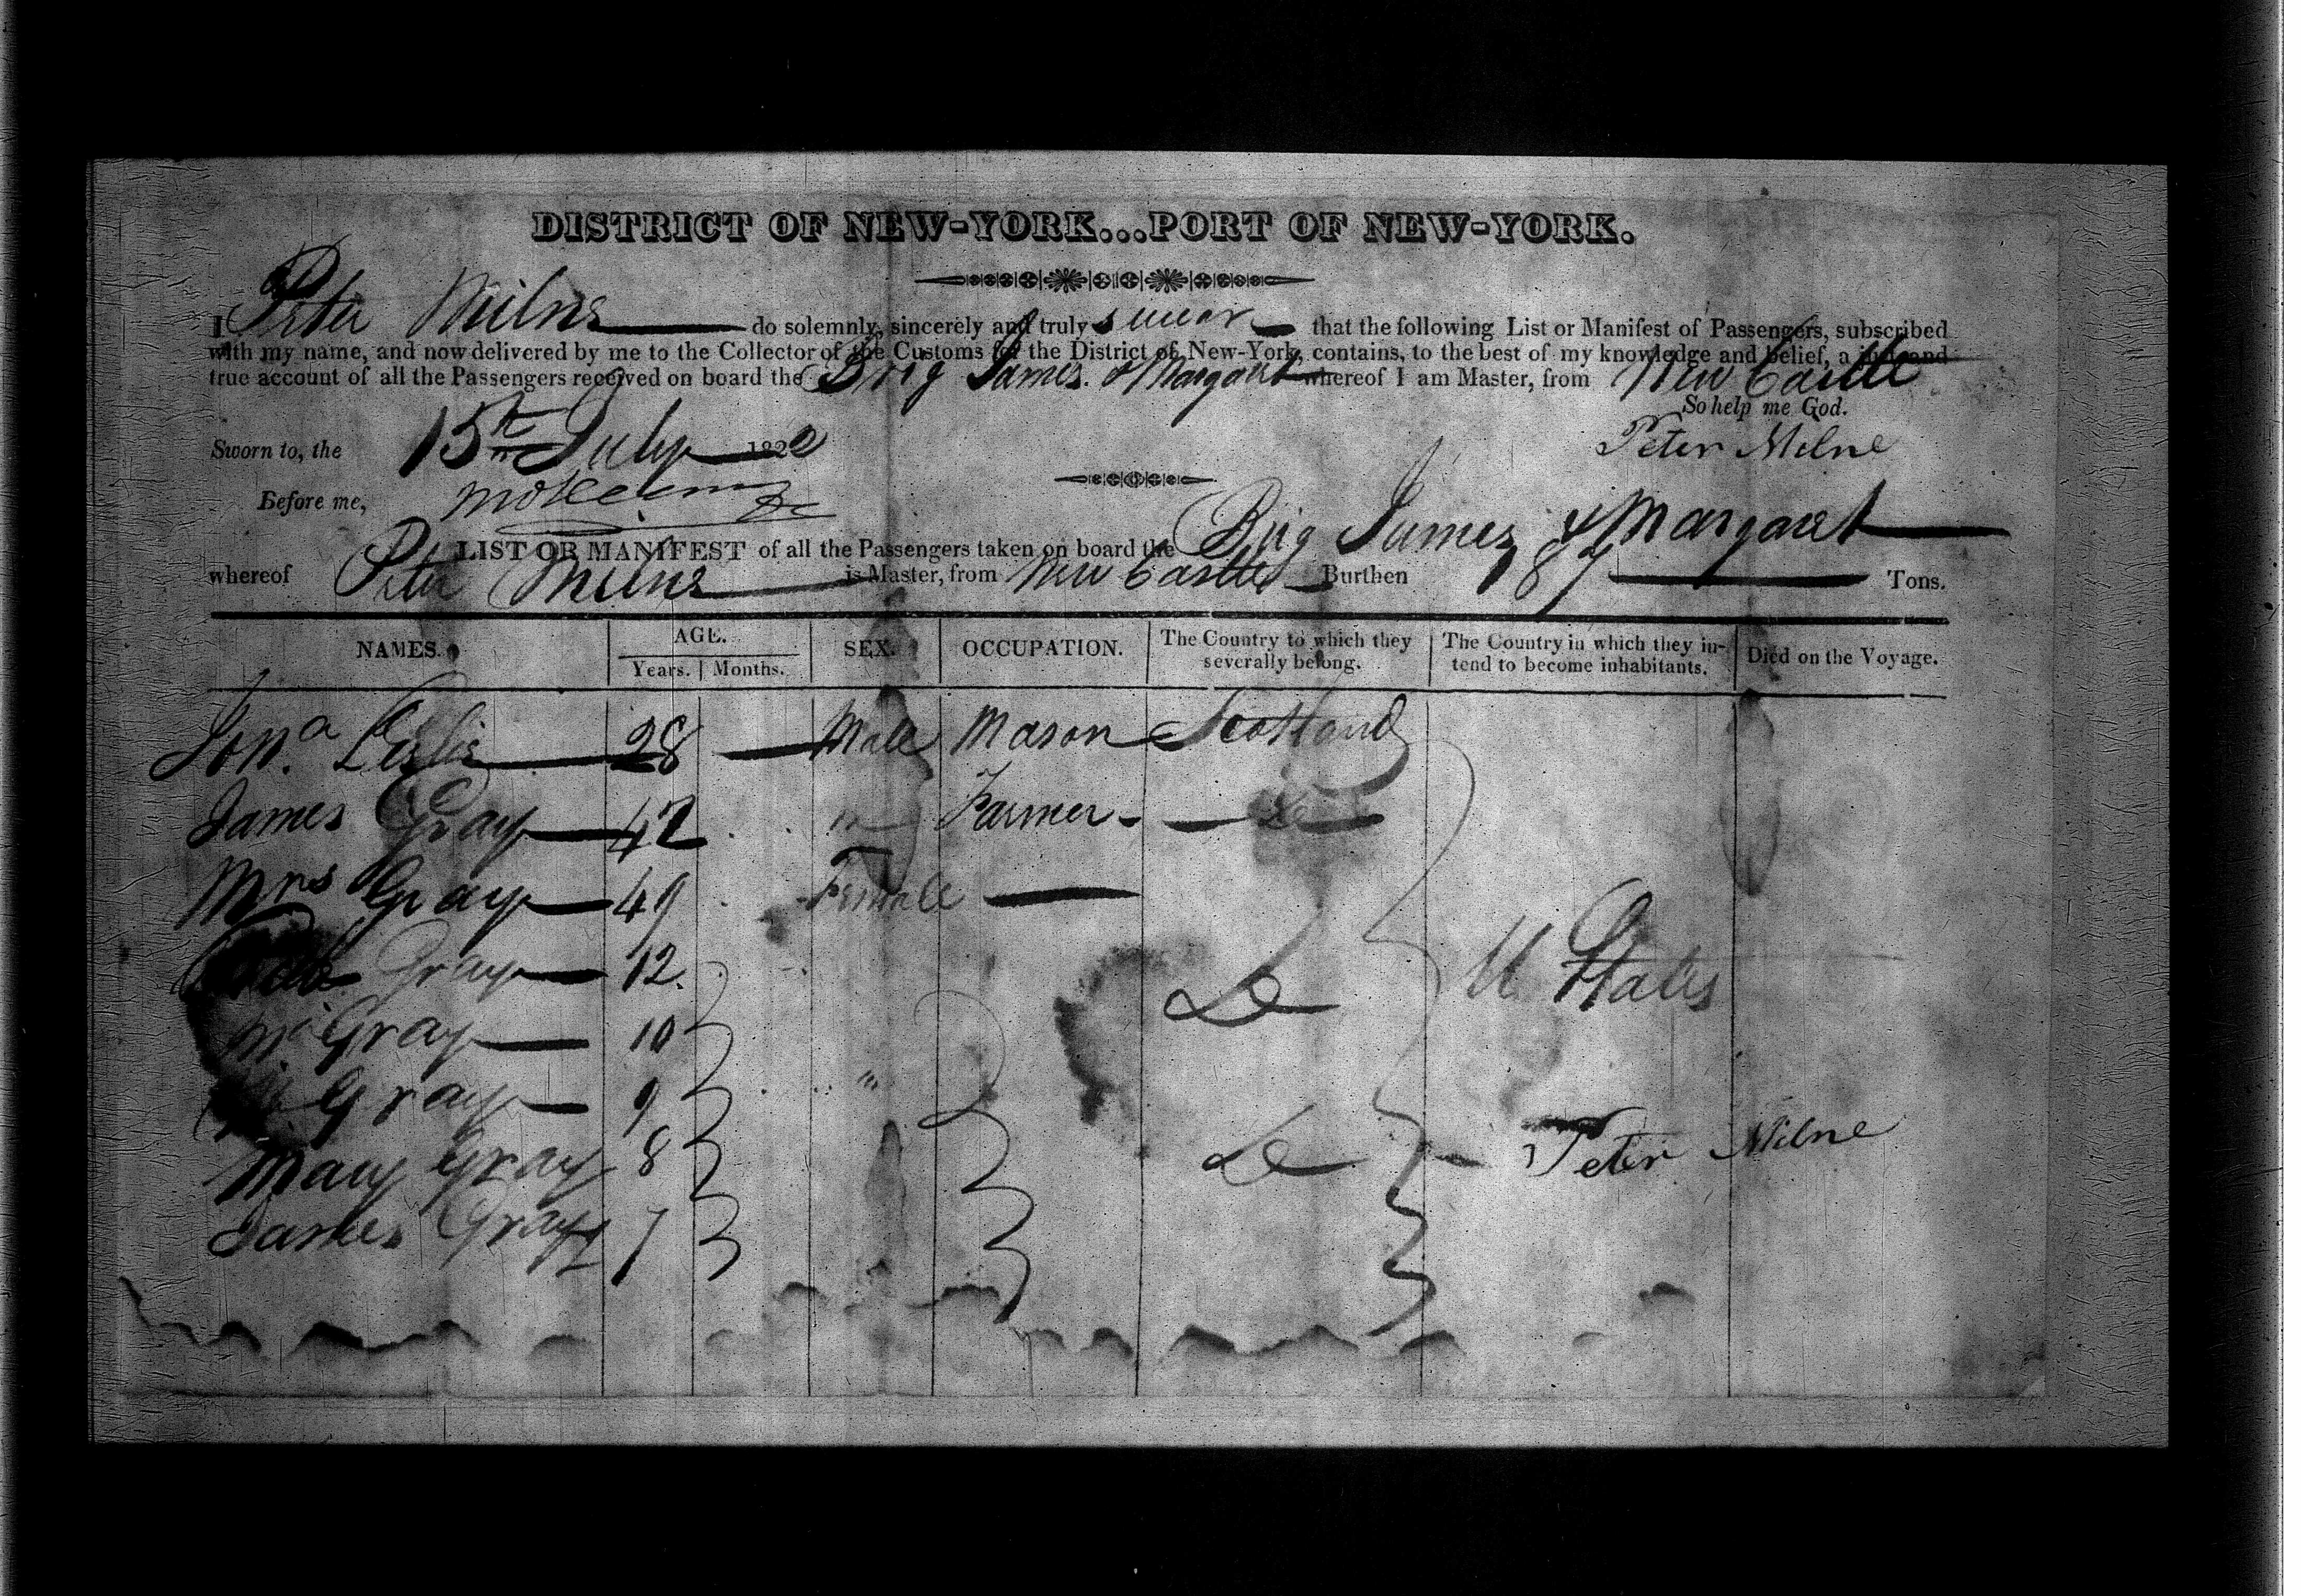 DISTRICT OF NEW-YORK...PORT OF NEW-YORK.
I Peter Milne do solemnly, sincerely and truly swear that the following List or Manifest of Passengers, subscribed
with my name, and now delivered by me to the Collector of the Customs for the District of New-York, contains, to the best of my knowledge and belief, a just and
true account of all the Passengers received on board the Brig James & Margaret whereof I am Master, from New Castle
So help me God.
Sworn to, the 15th July 182
Peter Milne
Before me,
LIST OR MANIFEST of all the Passengers taken on board the Brig James & Margaret
whereof Peter Milne is Master, from New Castle Burthen 187 Tons.
NAMES. AGE. Years. Months. SEX. OCCUPATION. The Country to which they severally belong. The Country in which they intend to become inhabitants. Died on the Voyage.
Jona. Leslie 28 Male Mason Scotland
James Gray 42 Farmer Do
Mrs Gray 49 Female
Gray 12 Do U States
Gray 10
Gray 9
Mary Gray 8 Do Peter Milne
James Gray 7